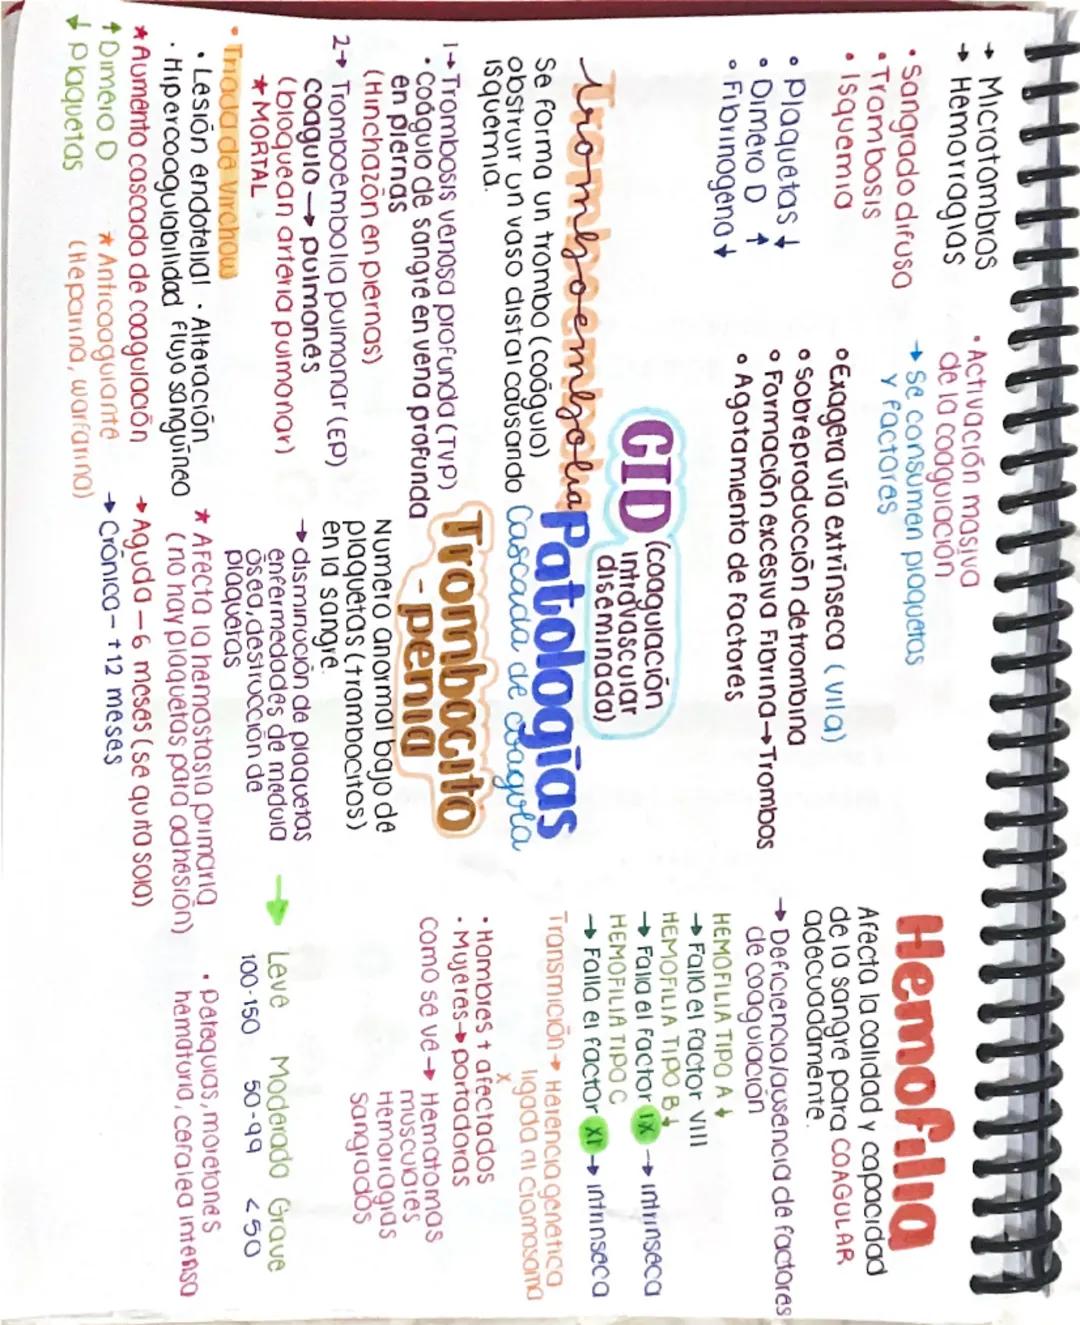 Patologías
Cascada de coagula
CID (coagulación
intravascular
diseminada)
→ Microtrombos
→ Hemorragias
• Sangrado difuso
• Trombosis
• Isquemia
• Plaquetas ↓
• Dimero D ↑
• Fibrinogeno ↓
• Activación masiva
de la coagulación
→ Se consumen plaquetas
y factores
• Exagera vía extrínseca (VIIa)
• Sobreproducción de trombina
• Formación excesiva Fibrina → Trombos
• Agotamiento de factores
Hemofilia
Afecta la calidad y capacidad
de la sangre para COAGULAR
adecuadamente.
→ Deficiencia/ausencia de factores
de coagulación
HEMOFILIA TIPO A ↓
→ Falla el factor VIII
HEMOFILIA TIPO B ↓
→ Falla el factor IX → intrínseca
HEMOFILIA TIPO C
→ Falla el factor XI → intrínseca
Transmición → Herencia genética
ligada al cromosoma
X
• Hombres + afectados
• Mujeres → portadoras
Como se ve → Hematomas
musculares
Hemorragias
Sangrados
Tromboembolia
Se forma un trombo (coágulo)
obstruir un vaso distal causando
isquemia.
1→ Trombosis venosa profunda (TVP)
• Coágulo de sangre en vena profunda
en piernas
(Hinchazón en piernas)
2→ Tromboembolia pulmonar (EP)
coágulo → pulmones
(bloquean arteria pulmonar)
★ MORTAL
• Triada de Virchow
• Lesión endotelial • Alteración
• Hipercoagulabilidad flujo sanguíneo
★ Aumento cascada de coagulación
↑ Dimero D
↓ Plaquetas
★ Anticoagulante
(Heparina, warfarina)
Trombocito
- penia
Número anormal bajo de
plaquetas (trombocitos)
en la sangre.
→ disminución de plaquetas
enfermedades de medula
ósea, destrucción de
plaquetas
★ Afecta la hemostasia primaria
(no hay plaquetas para adhesión)
→ Aguda - 6 meses (se quita sola)
→ Crónica - +12 meses
→ Leve Moderado Grave
100-150 50-99 <50
• petequias, moretones
hematuria, cefalea intensa